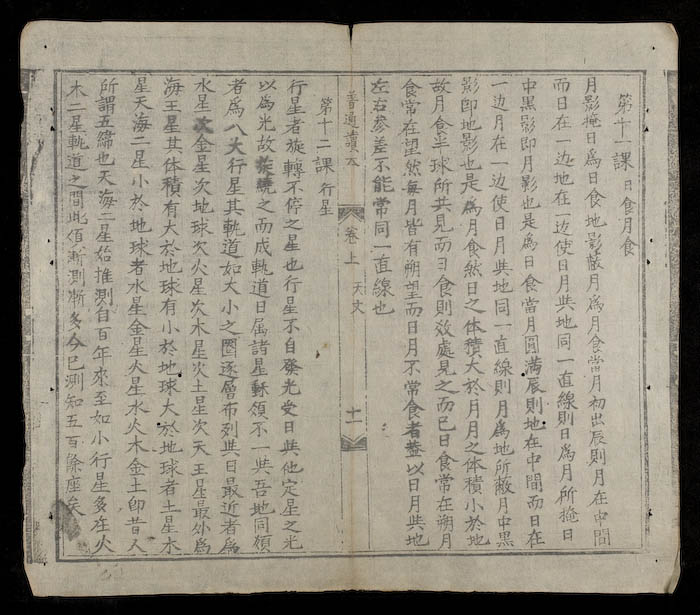 第十一課 日食月食
月影掩日爲日食地影蔽月爲月食當月初出辰則月在中間
而日在一邊地在一邊使日月共地同一直線則日爲月所掩日
中黑影即月影也是爲日食當月圓满辰則地在中間而日在
一边月在一边使日月共地同一直線則月爲地所蔽月中黑
影即地影也是爲月食然日之体積大於月月之体積小於地
故月食半球所共見而日食則效處見之而已日食常在朔月
食常在望然每月皆有朔望而日月不常食者蓋以日月共地
左右參差不能常同一直線也
普通讀本
卷上 天文
十一
第十二課 行星
行星者旋轉不停之星也行星不自發光受日共他定星之光
以爲光故旋繞之而成軌道日属諸星稣領不一共吾地同領
者爲八大行星其軌道如大小之圈逐層布列共日最近者爲
水星次金星次地球次火星次木星次土星次天王星最外爲
海王星其体積有大於地球有小於地球大於地球者土星木
星天海二星小於地球者水星金星火星水火木金土即昔人
所謂五緯也天海二星始推測自百年來至如小行星多在火
木二星軌道之間此領漸測漸多今已測知五百餘座矣